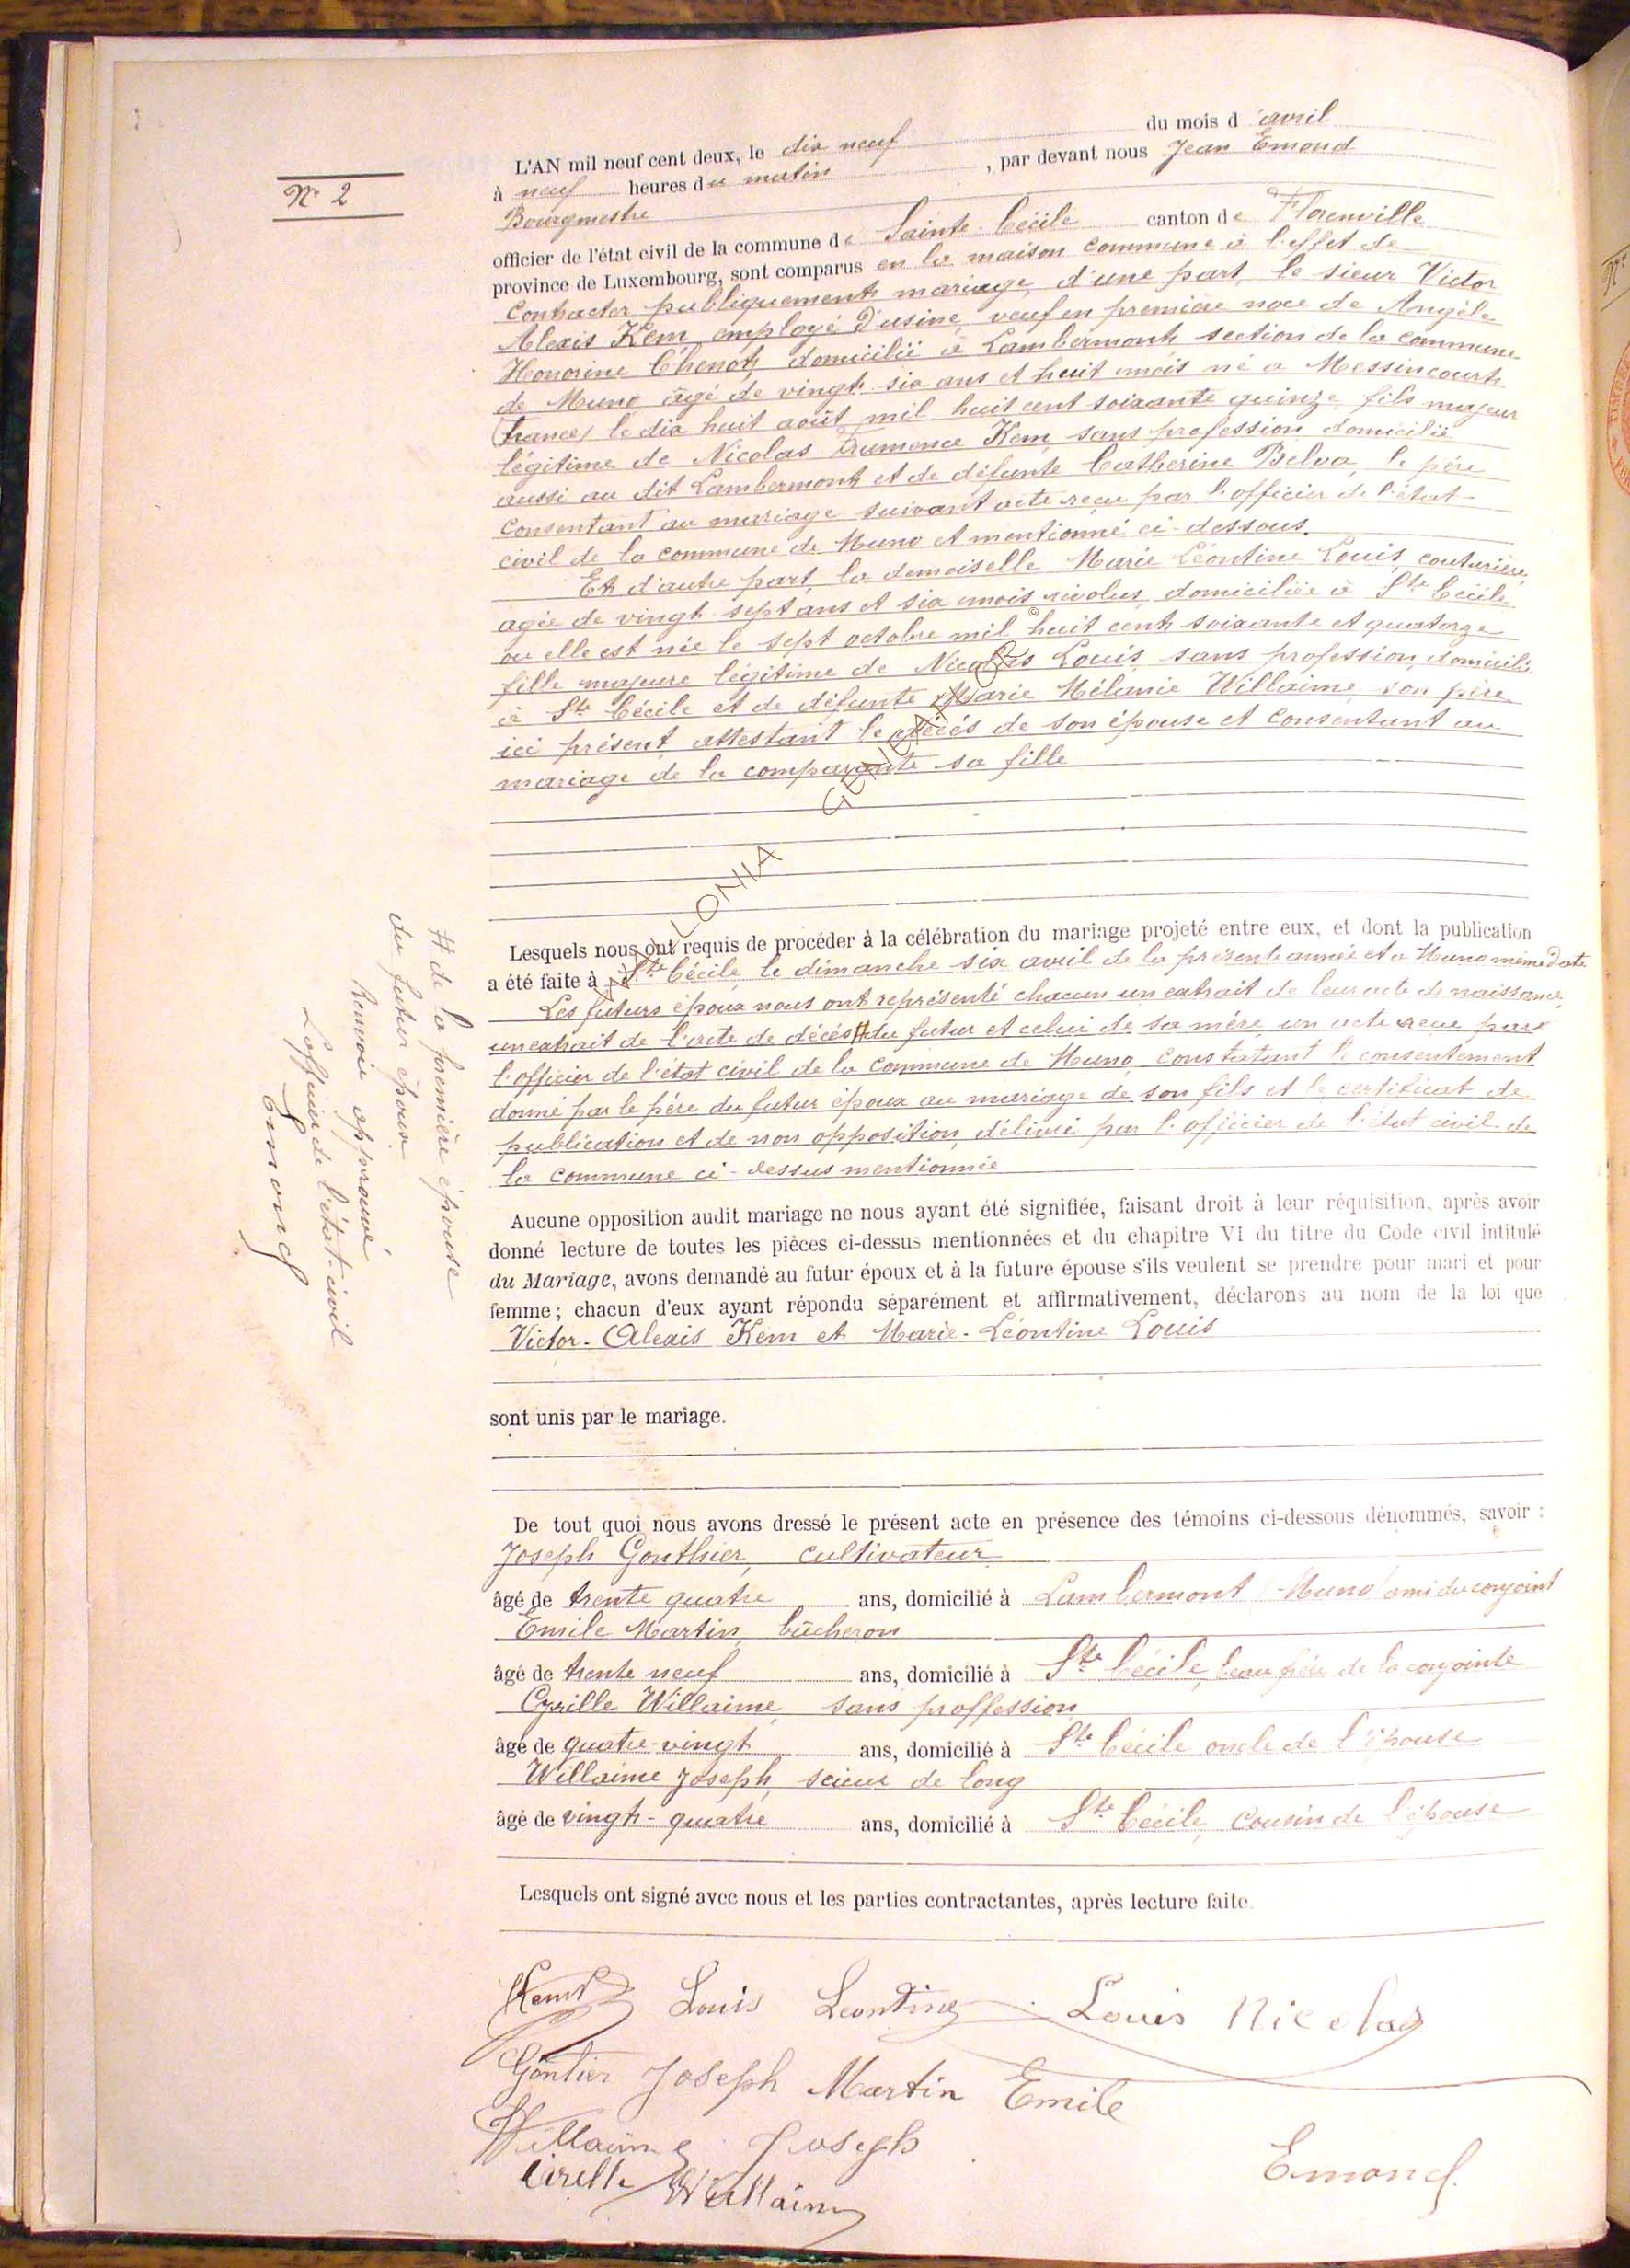 N° 2
L'AN mil neuf cent deux, le dix neuf du mois d'avril
à neuf heures du matin, par devant nous Jean Emond
Bourgmestre
officier de l'état civil de la commune de Sainte-Cécile canton de Florenville
province de Luxembourg, sont comparus en la maison commune à l'effet de
contracter publiquement mariage, d'une part, le sieur Victor
Alexis Kem, employé d'usine, veuf en première noce de Angèle
Honorine Chenot, domicilié à Lambermont section de la commune
de Muno âgé de vingt-six ans et huit mois né a Messincourt
(france) le dix huit août mil huit cent soixante quinze, fils majeur
légitime de Nicolas Kem, sans profession domicilié
aussi au dit Lambermont et de défunte Catherine Belva, le père
consentant au mariage suivant acte reçu par l'officier de l'état-
civil de la commune de Muno et mentionné ci-dessous.
Et d'autre part, la demoiselle Marie Léontine Louis, couturière,
agée de vingt-sept ans et six mois révolus, domiciliée à Ste Cécile
ou elle est née le sept octobre mil huit cent soixante et quatorze
fille majeure légitime de Nicolas Louis, sans profession, domicilié
à Ste Cécile et de défunte Marie Mélanie Willaime, son père
ici présent attestant le décès de son épouse et consentant au
mariage de la comparante sa fille
Lesquels nous ont requis de procéder à la célébration du mariage projeté entre eux, et dont la publication
a été faite à Ste Cécile, le dimanche six avril de la présente année et a Muno même date
Les futurs époux nous ont représenté chacun un extrait de leur acte de naissance,
un extrait de l'acte de décès # du futur et celui de sa mère, un acte reçu par
l'officier de l'état civil de la commune de Muno, constatant le consentement
donné par le père du futur époux au mariage de son fils et le certificat de
publication et de non opposition, délivré par l'officier de l'état civil de
la commune ci-dessus mentionnée
# de la première épouse
du futur époux
Renvoi approuvé
L'officier de l'état-civil
Emond
Aucune opposition audit mariage ne nous ayant été signifiée, faisant droit à leur réquisition, après avoir
donné lecture de toutes les pièces ci-dessus mentionnées et du chapitre VI du titre du Code civil intitulé
du Mariage, avons demandé au futur époux et à la future épouse s'ils veulent se prendre pour mari et pour
femme; chacun d'eux ayant répondu séparément et affirmativement, déclarons au nom de la loi que
Victor-Alexis Kem et Marie-Léontine Louis
sont unis par le mariage.
De tout quoi nous avons dressé le présent acte en présence des témoins ci-dessous dénommés, savoir :
Joseph Gonthier, cultivateur
âgé de trente quatre ans, domicilié à Lambermont (Muno) ami du conjoint
Emile Martin, bûcheron
âgé de trente neuf ans, domicilié à Ste Cécile, beau frère de la conjointe
Cyrille Willaime, sans proffession
âgé de quatre-vingt ans, domicilié à Ste Cécile oncle de l'épouse
Willaime Joseph, scieur de long
âgé de vingt-quatre ans, domicilié à Ste Cécile, cousin de l'épouse
Lesquels ont signé avec nous et les parties contractantes, après lecture faite.
Louis Leontine Louis Nicolas
Gontier Joseph Martin Emile
Willaime Joseph
Emond
Cirille Willaime
WALLONIA GENEALOGY ©